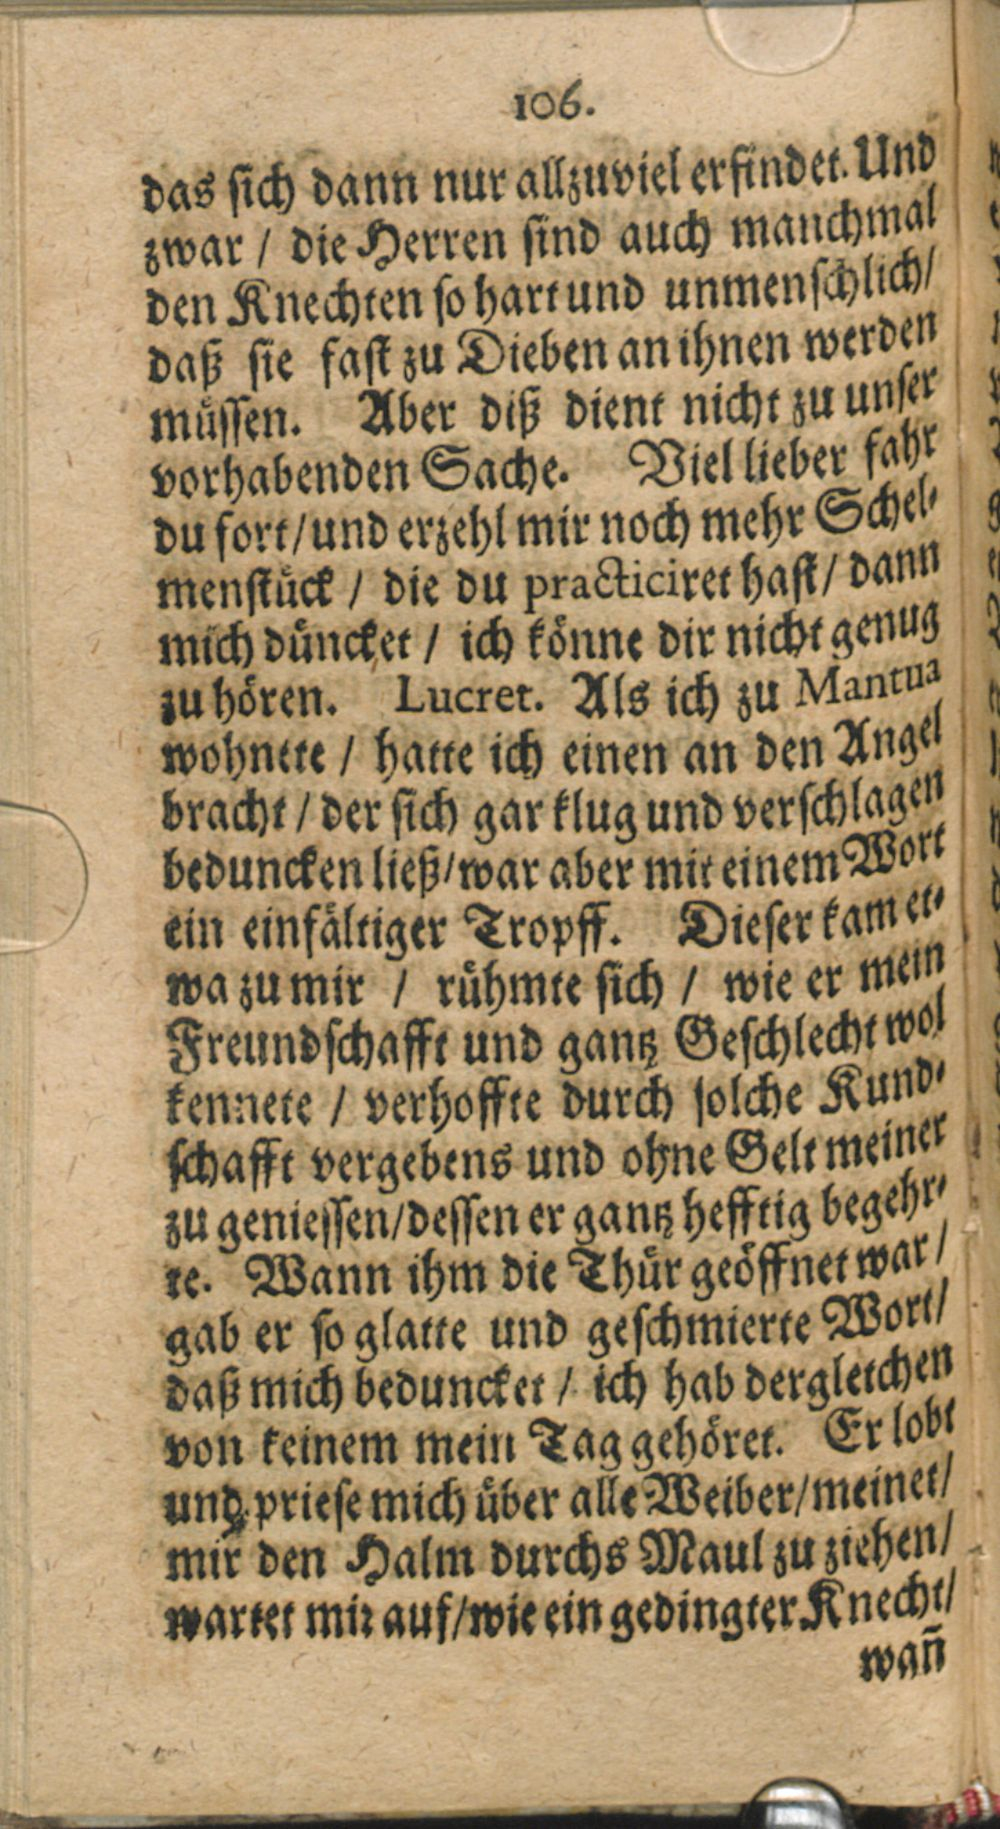 106.
das sich dann nur allzuviel erfindet. Und
zwar / die Herren sind auch manchmal
den Knechten so hart und unmenschlich/
daß sie fast zu Dieben an ihnen werden
müssen. Aber diß dient nicht zu unser
vorhabenden Sache. Viel lieber fahr
du fort/und erzehl mir noch mehr Schel-
menstück / die du practiciret hast/ dann
mich düncket / ich könne dir nicht genug
zu hören. Lucret. Als ich zu Mantua
wohnete / hatte ich einen an den Angel
bracht / der sich gar klug und verschlagen
beduncken ließ/war aber mit einem Wort
ein einfältiger Tropff. Dieser kam et-
wa zu mir / rühmte sich / wie er mein
Freundschafft und gantz Geschlecht wol
kennete / verhoffte durch solche Kund-
schafft vergebens und ohne Gelt meiner
zu geniessen/dessen er gantz hefftig begehr-
te. Wann ihm die Thür geöffnet war/
gab er so glatte und geschmierte Wort/
daß mich beduncket / ich hab dergleichen
von keinem mein Tag gehöret. Er lobt
und priese mich über alle Weiber/meinet/
mir den Halm durchs Maul zu ziehen/
wartet mir auf/wie ein gedingter Knecht/
wañ